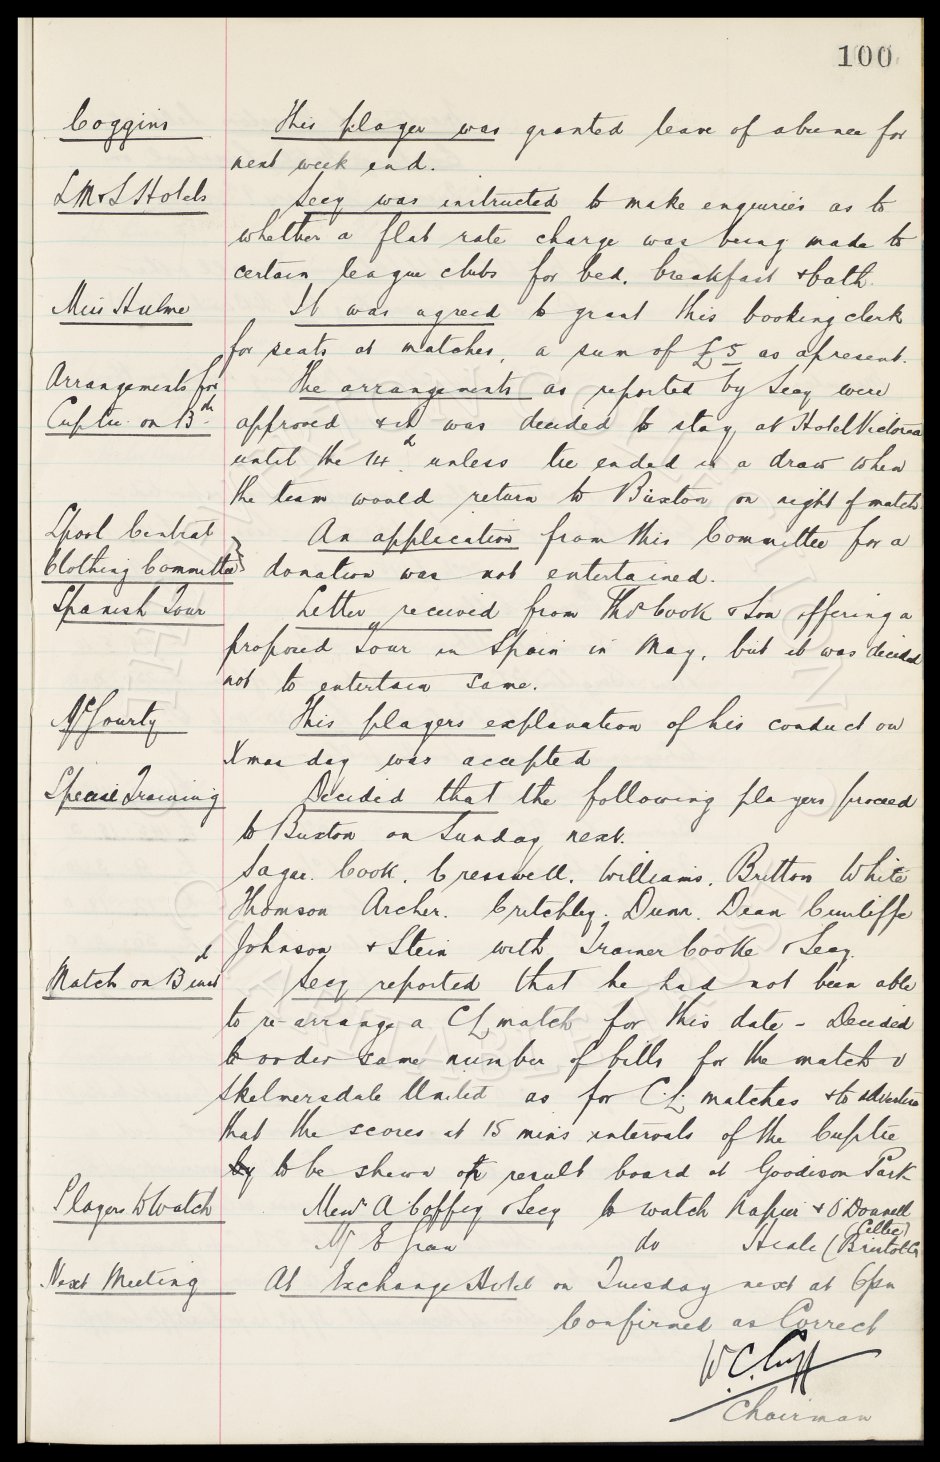 100
Coggins This player was granted leave of absence for
next week end.
L M & S Hotels Secy was instructed to make enquiries as to
whether a flat rate charge was being made to
certain league clubs for bed, breakfast & bath.
Miss Hulme It was agreed to grant this booking clerk
for seats at matches, a sum of £5 as a present.
Arrangements for The arrangements as reported by Secy were
Cuptie on 13th approved & it was decided to stay at Hotel Victoria
until the 14th unless tie ended in a draw when
the team would return to Buxton on night of match.
Lpool Central An application from this Committee for a
Clothing Committee } donation was not entertained.
Spanish Tour Letter received from Thos Cook & Son offering a
proposed tour in Spain in May, but it was decided
not to entertain same.
McGourty This players explanation of his conduct on
Xmas day was accepted
Special Training Decided that the following players proceed
to Buxton on Sunday next.
Sagar. Cook. Cresswell. Williams. Britton White
Thomson Archer. Critchley. Dunn. Dean Cunliffe
Johnson & Stein with Trainer Cooke & Secy.
Match on 13 inst Secy reported that he had not been able
to re-arrange a CL match for this date - Decided
to order same number of bills for the match v
Skelmersdale United as for C.L. matches & to advertise
that the scores at 15 mins intervals of the Cuptie
to be shewn on result board at Goodison Park
Players to Watch Messrs A. Coffey & Secy to watch Napier & O'Donnell
(Celtic)
Mr E Green do Heale (Bristol C
Next Meeting At Exchange Hotel on Tuesday next at 6pm
Confirmed as Correct
W. C. Cuff
Chairman